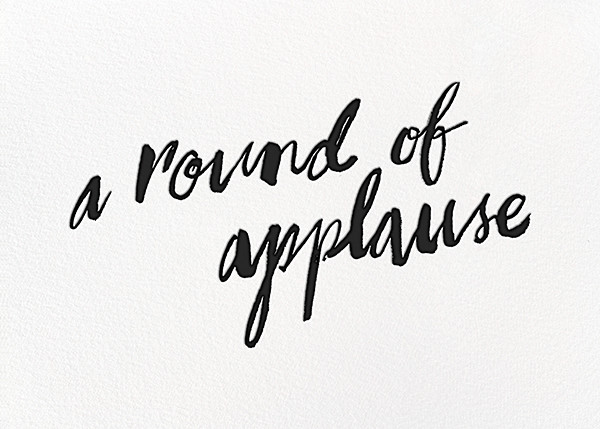 a round of
applause